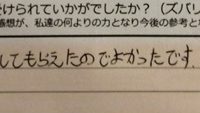 けられていかがでしたか？（ズバリ
感想が、私達の何よりの力となり今後の参考と
してもらえたのでよかったです。